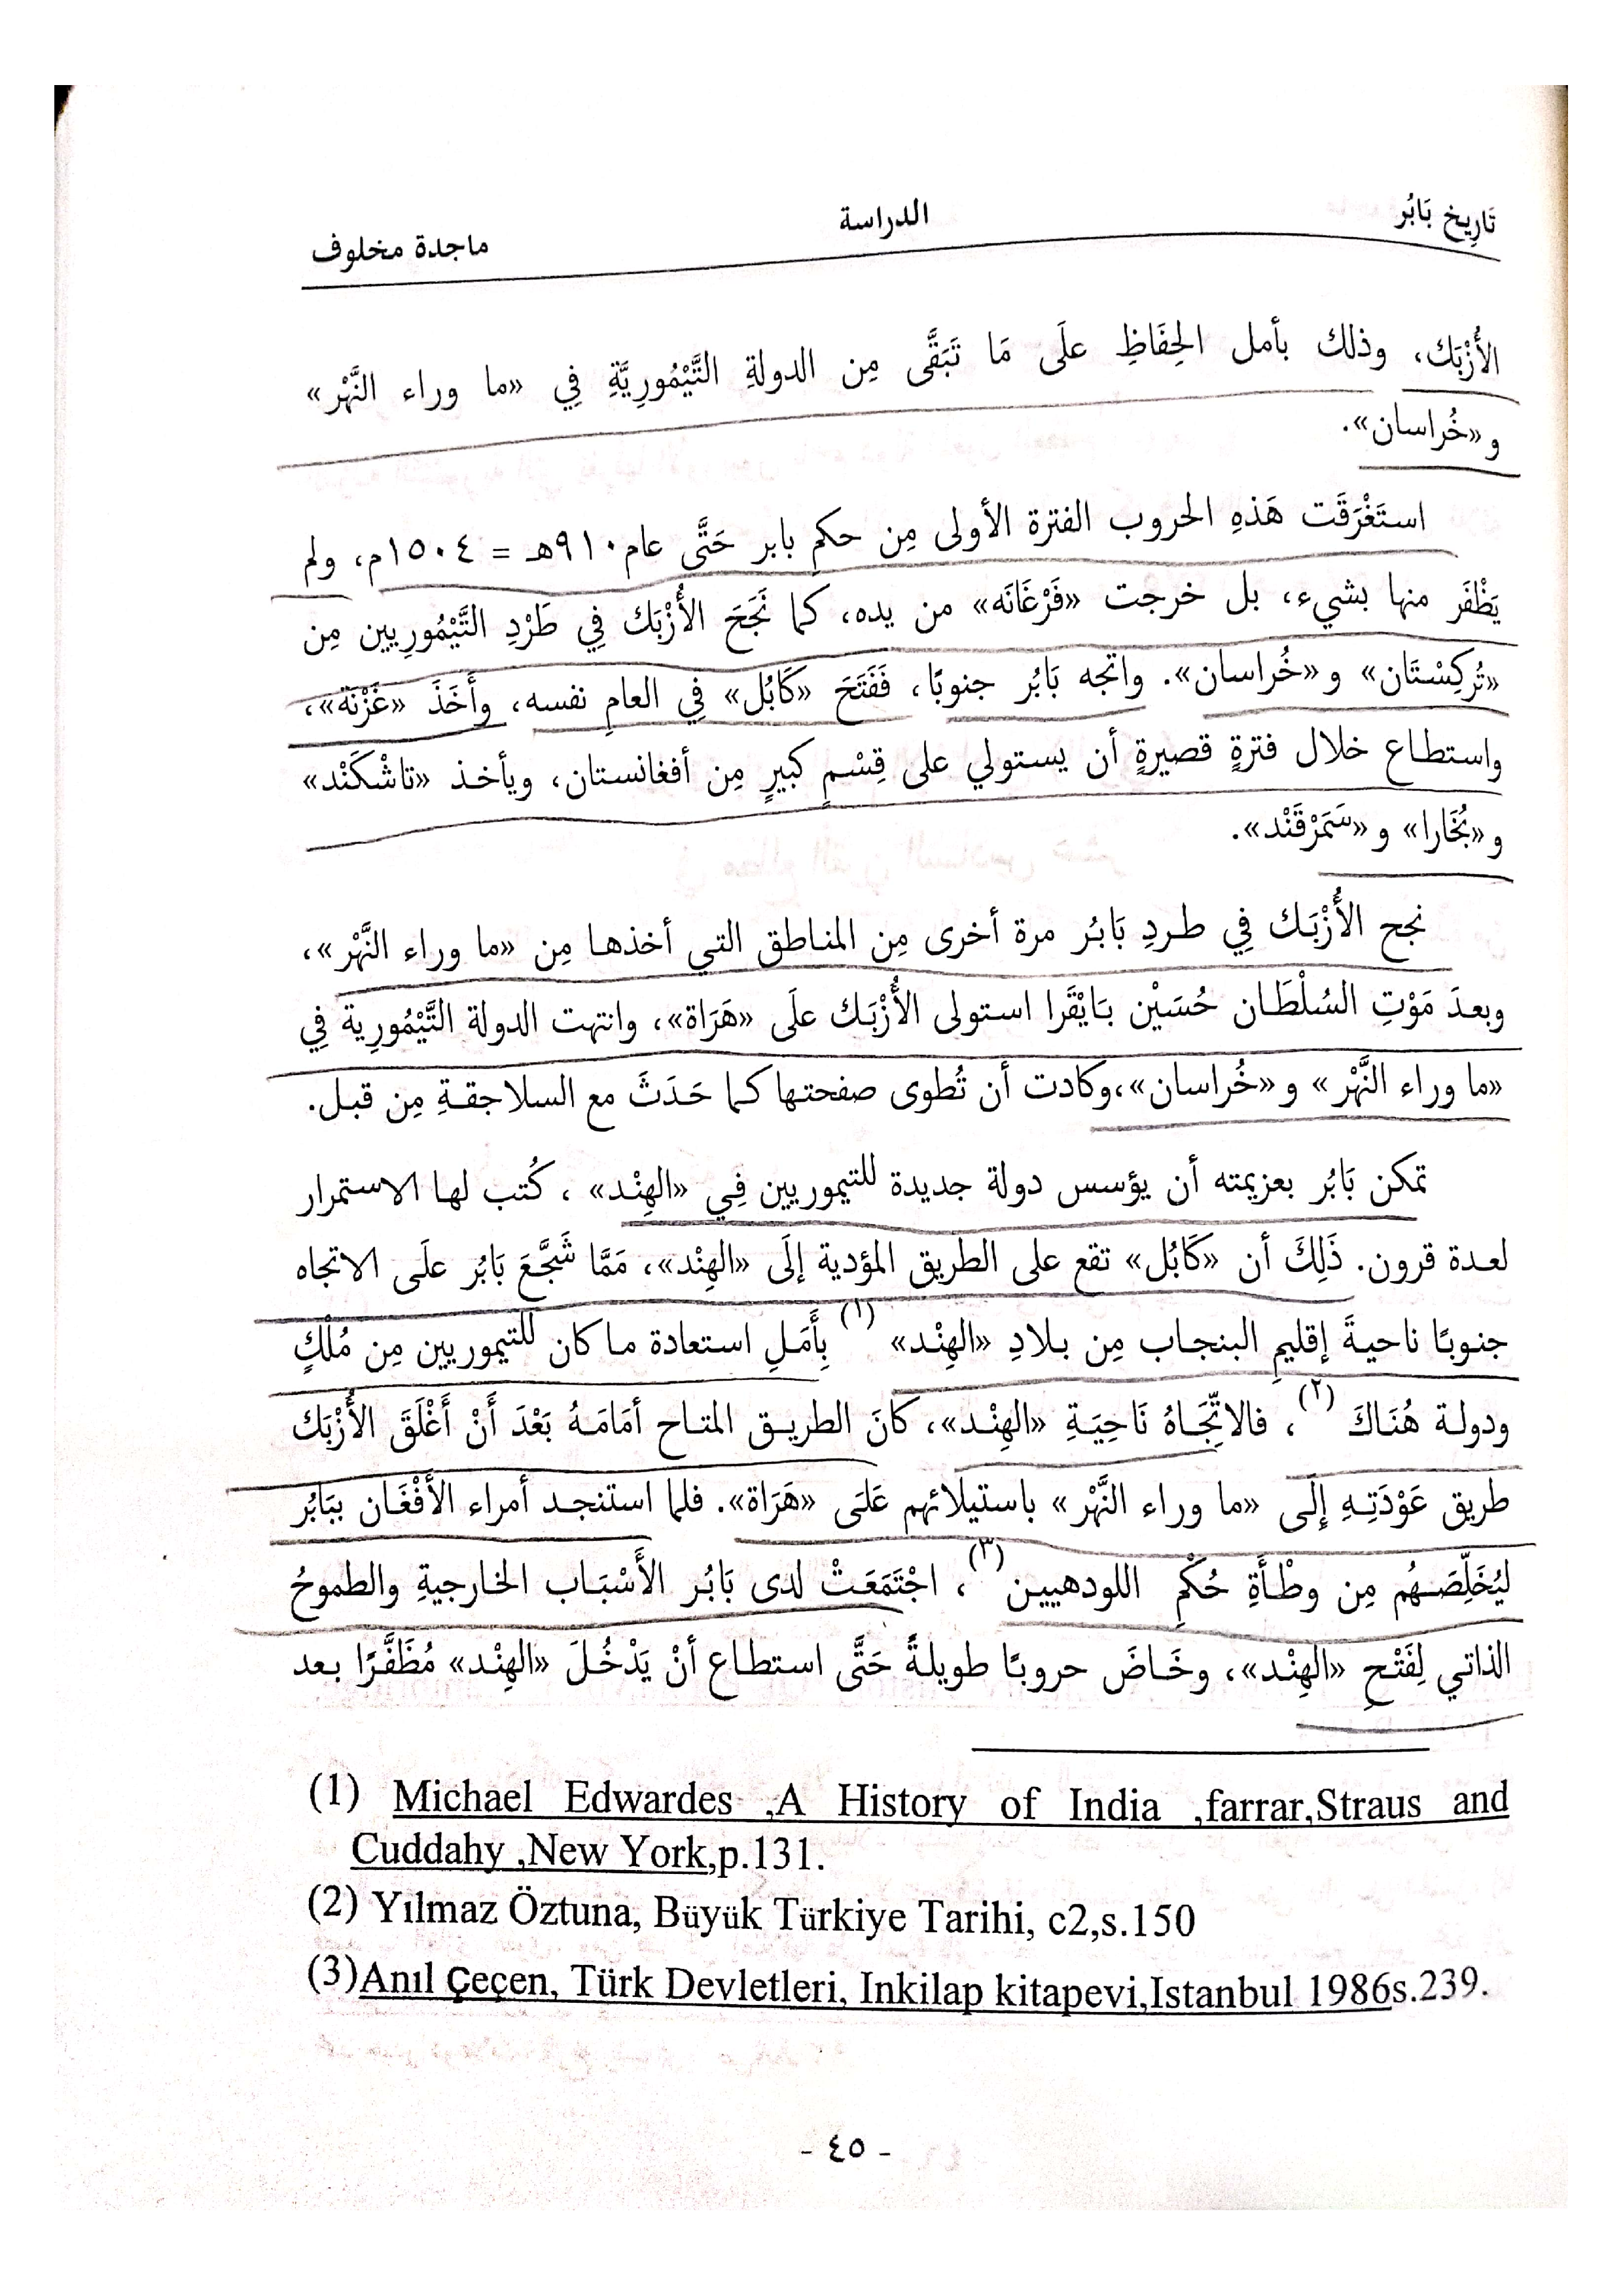 تَارِيخ بَابُر
الدراسة
ماجدة مخلوف
الأُزْبَك، وذلك بأمل الحِفَاظِ علَى مَا تَبَقَّى مِن الدولةِ التَّيْمُورِيَّةِ فِي «ما وراء النَّهْر»
و«خُراسان».
استَغْرَقَت هَذهِ الحروب الفترة الأولى مِن حكمِ بابر حَتَّى عام ٩١٠هـ = ١٥٠٤م، ولم
يَظْفَر منها بشيء، بل خرجت «فَرْغَانَه» من يده، كما نَجَحَ الأُزْبَك فِي طَرْدِ التَّيْمُورِيين مِن
«تُركِسْتَان» و«خُراسان». واتجه بَابُر جنوبًا، فَفَتَحَ «كَابُل» فِي العامِ نفسه، وأَخَذَ «غَزْنَة»،
واستطاع خلال فترةٍ قصيرةٍ أن يستولي على قِسْمٍ كبيرٍ مِن أفغانستان، ويأخذ «تاشْكَنْد»
و«بُخَارا» و«سَمَرْقَنْد».
نجح الأُزْبَك فِي طردِ بَابُر مرة أخرى مِن المناطق التي أخذها مِن «ما وراء النَّهْر»،
وبعدَ مَوْتِ السُلْطَان حُسَيْن بَايْقَرا استولى الأُزْبَك علَى «هَرَاة»، وانتهت الدولة التَّيْمُورِية فِي
«ما وراء النَّهْر» و«خُراسان»،وكادت أن تُطوى صفحتها كما حَدَثَ مع السلاجقةِ مِن قبل.
تمكن بَابُر بعزيمته أن يؤسس دولة جديدة للتيموريين فِي «الهِنْد» ، كُتب لها الاستمرار
لعدة قرون. ذَلِكَ أن «كَابُل» تقع على الطريق المؤدية إلَى «الهِنْد»، مَمَّا شَجَّعَ بَابُر علَى الاتجاه
جنوبًا ناحيةَ إقليمِ البنجاب مِن بلادِ «الهِنْد» (١) بِأَمَلِ استعادة ما كان للتيموريين مِن مُلْكٍ
ودولة هُنَاكَ (٢)، فالاتِّجَاهُ نَاحِيَةِ «الهِنْد»، كانَ الطريق المتاح أمَامَهُ بَعْدَ أَنْ أَغْلَقَ الأُزْبَك
طريق عَوْدَتِهِ إِلَى «ما وراء النَّهْر» باستيلائهم عَلَى «هَرَاة». فلما استنجد أمراء الأَفْغَان بِبَابُر
ليُخَلِّصَهُم مِن وطْأَةِ حُكْمِ اللودهيين(٣)، اجْتَمَعَتْ لدى بَابُر الأَسْبَاب الخارجيةِ والطموحُ
الذاتي لِفَتْحِ «الهِنْد»، وخَاضَ حروبًا طويلةً حَتَّى استطاع أنْ يَدْخُلَ «الهِنْد» مُظَفَّرًا بعد
(1) Michael Edwardes ,A History of India ,farrar,Straus and
Cuddahy ,New York,p.131.
(2) Yılmaz Öztuna, Büyük Türkiye Tarihi, c2,s.150
(3)Anıl Çeçen, Türk Devletleri, Inkilap kitapevi,Istanbul 1986s.239.
- ٤٥ -